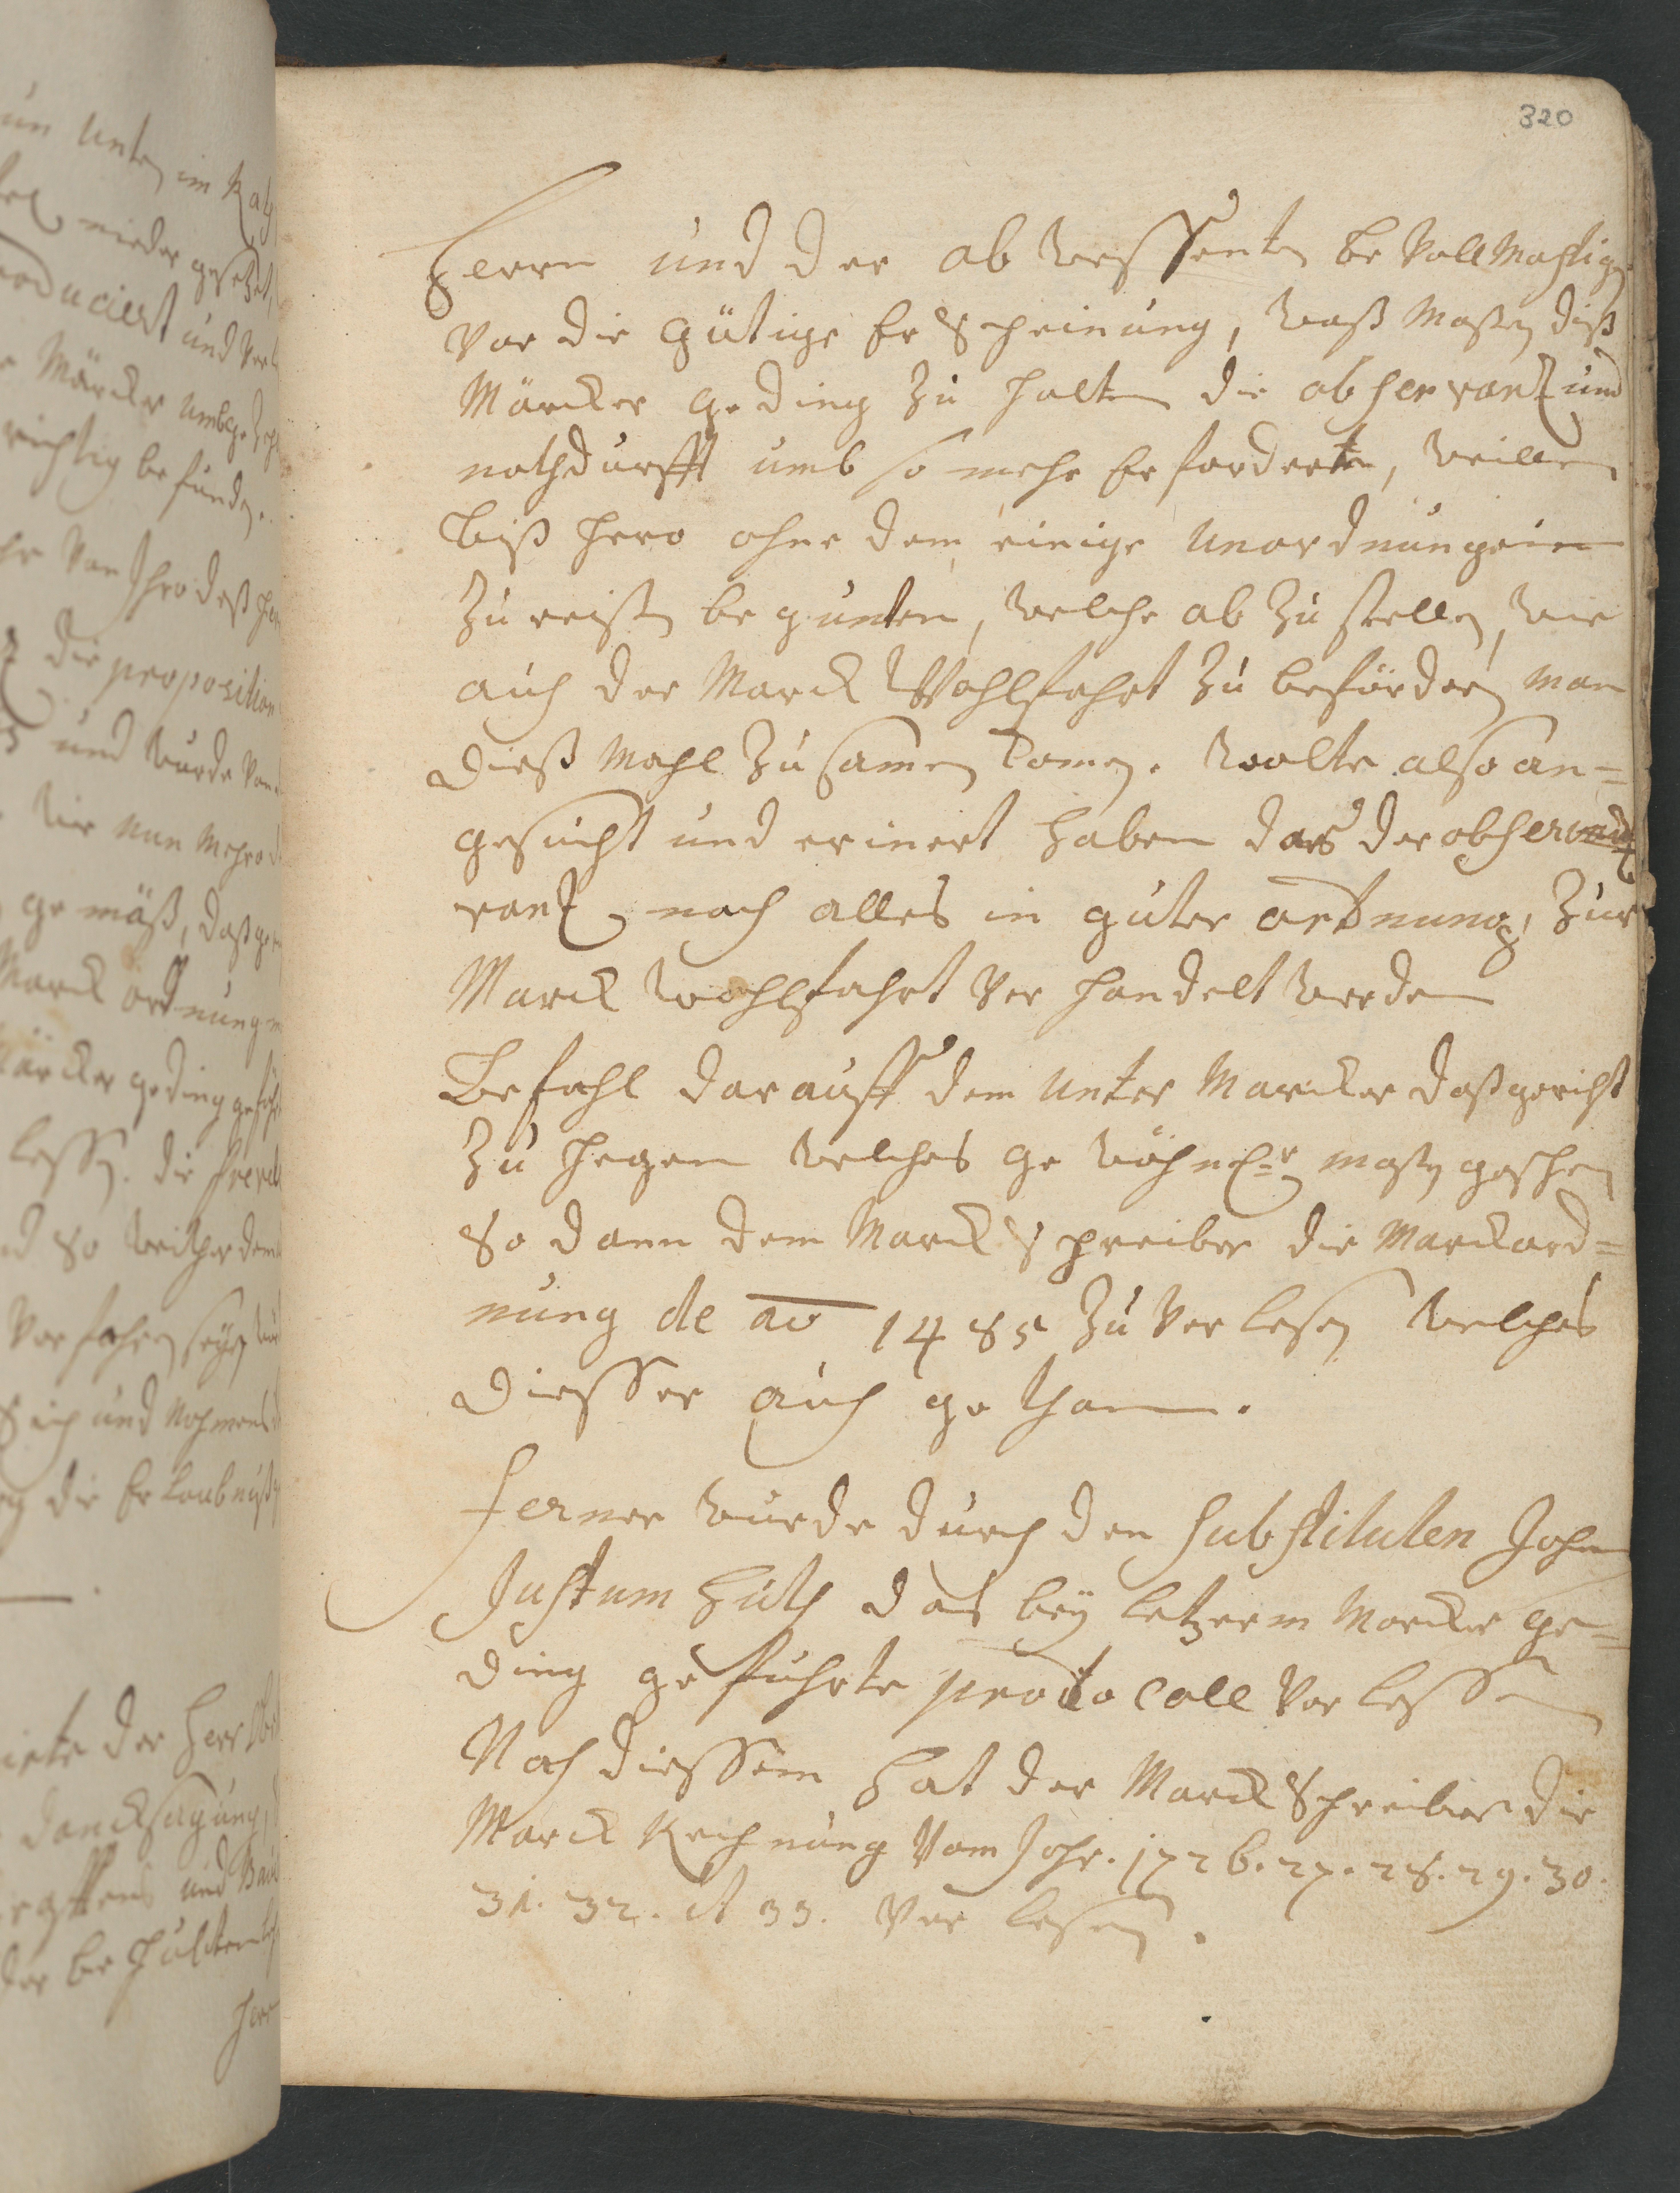 320
Herrn und der ab wessenten be Vollmachtigen
Vor die gütige Erscheinung, waß Maßen diß
Märcker geding zu halten die observantz und
nothdurfft umb so mehr Erforderten, weillen
biß hero ohne dem einige Unordnungein
zu reißen begunten, welche ab zu stellen, wie
auch der Marck Wohlfahrt zu beförderen man
dieß Mahl zusamen komen. Wolte also an=
gesucht und erinert haben das der observantz
vantz nach alles in guter ordnung, zur
Marck Wohlfahrt Verhandelt werden
Befahl darauff dem unter Marcker daß gericht
zu hegen welches gewöhnl.r maßen geschehen
So dann dem Marckschreiber die Marckord=
nung de ao 1485 zu Verlesen welches
diesser auch gethan.
Ferner wurde durch den substituten Johan
Justum Huth das beÿ letzerm Marcker ge=
ding geführte protocoll Vorlessen
Nach diessem hat der Marckschreiber die
Marck Rechnung Vom Jahr. 1726. 27. 28. 29. 30.
31. 32. et 33. Verlesen.
un Unten im Rath
nieder gesetzt,
producirt und
Märcker umbgezehlt
richtig befunden.
Von Ihro deß
die proposition
und wurde Von
wie nun Mehro
gemäß, daß
Marck ordnung
Märcker geding
lessen. die
so weither dem
Verfahren seÿn
ich und Nahmens
die Erlaubnuß
der Herr
dancksagung,
und
der be
Herrn